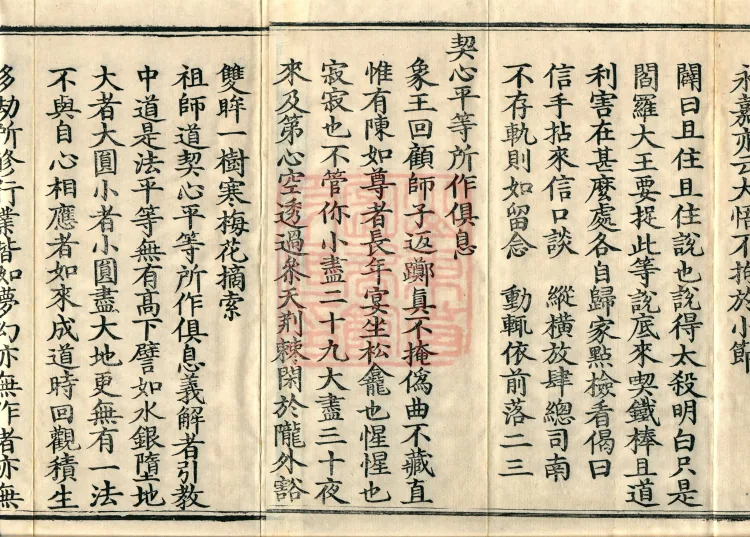 永嘉亦云大悟不拘於小節
闢曰且住且住說也說得太殺明白只是
閻羅大王要捉此等說底來喫鐵棒且道
利害在甚麼處各自歸家點檢看偈曰
信手拈來信口談　縱橫放肆總司南
不存軌則如留念　動輒依前落二三
契心平等所作俱息
象王回顧師子返躑真不掩偽曲不藏直
惟有陳如尊者長年宴坐松龕也惺惺也
寂寂也不管你小盡二十九大盡三十夜
來及第心空透過參天荆棘閑於隴外豁
雙眸一樹寒梅花摘索
祖師道契心平等所作俱息義解者引教
中道是法平等無有高下譬如水銀墮地
大者大圓小者小圓盡大地更無有一法
不與自心相應者如來成道時回觀積生
多劫所修行業皆如夢幻亦無作者亦無